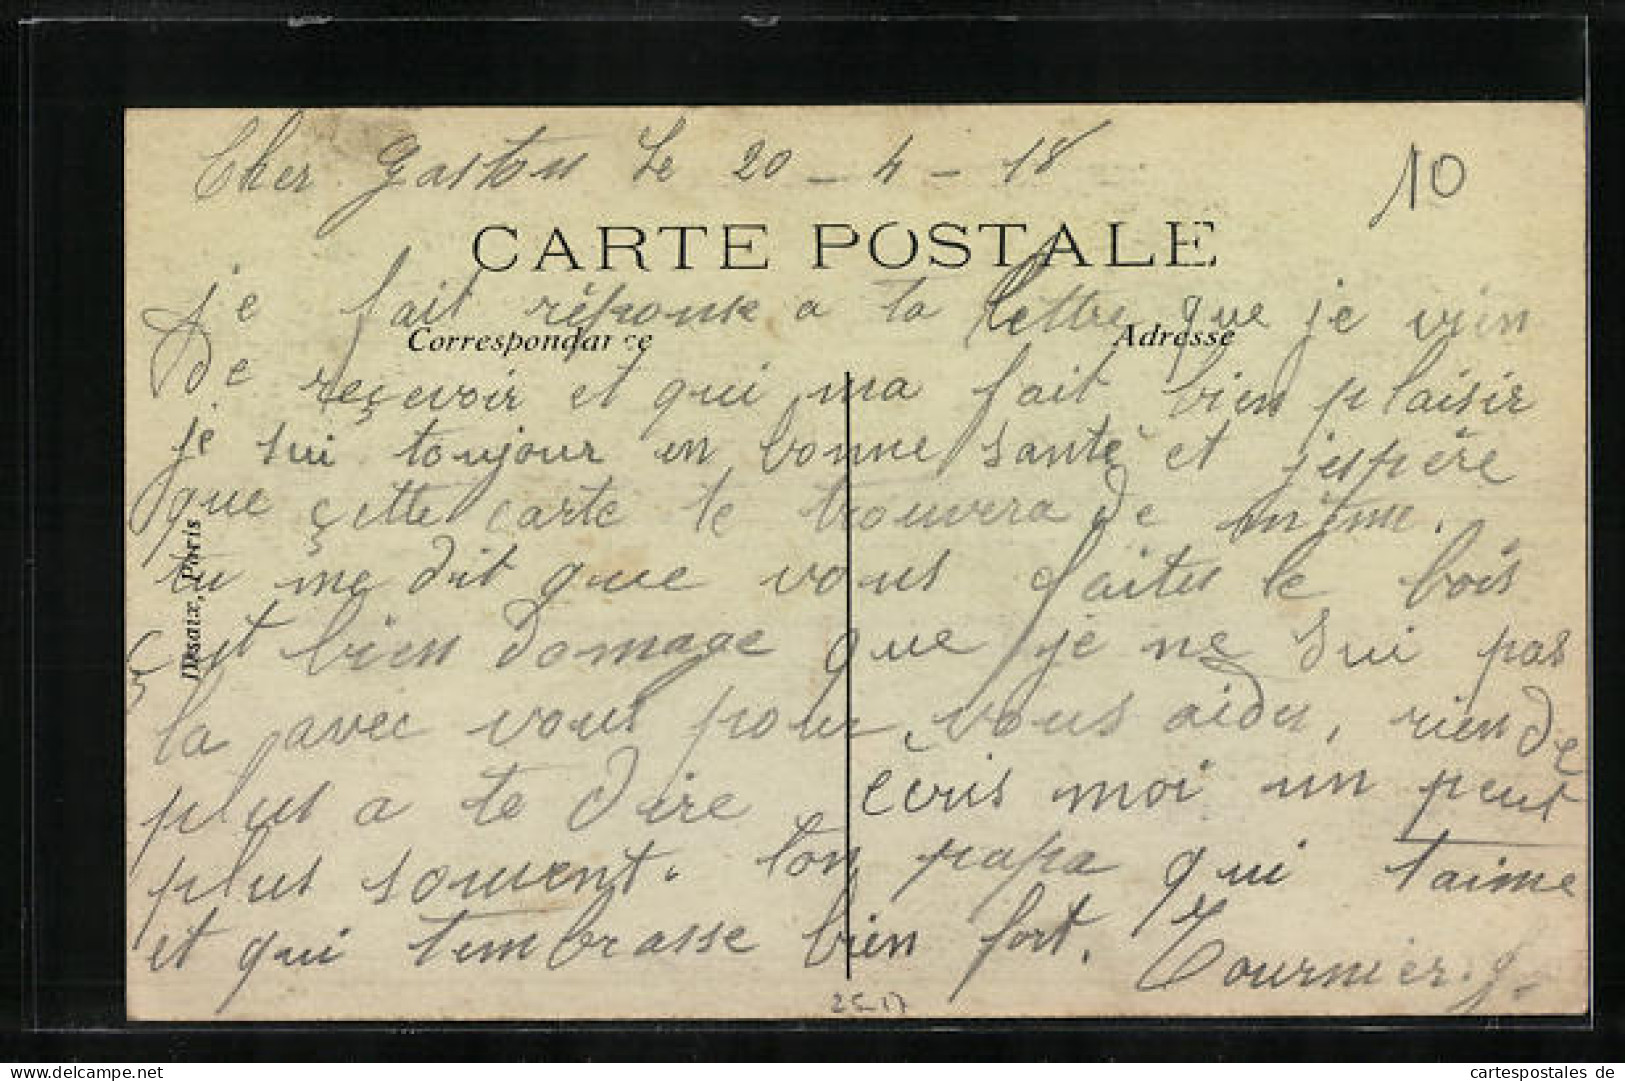 Cher Gaston Le 20 - 4 - 18
10
CARTE POSTALE
je fait réponse a ta lettre que je vien
Correspondance Adresse
de reçevoir et qui ma fait bien plaisir
je sui toujour en bonne santé et jespère
que çette carte te trouvera de même.
tu me dit que vous faites le bois
çest bien domage que je ne sui pas
la avec vous pour vous aider, rien de
plus a te dire écris moi un peut
plus souvent. ton papa qui taime
et qui tembrasse bien fort. Tournier. J.
Desaix, Paris
cartespostales de
cartespostales.de